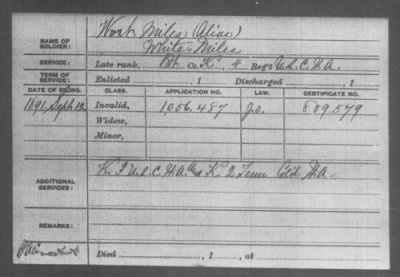 NAME OF SOLDIER: Work Miles (Alias)
White Miles
SERVICE: Late rank, Pvt Co. K, 4 Reg't U.S.C.H.A.
TERM OF SERVICE: Enlisted , 1 Discharged , 1
DATE OF FILING. CLASS. APPLICATION NO. LAW. CERTIFICATE NO.
1891, Sept. Invalid, 1,006.487 809.579
Widow,
Minor,
ADDITIONAL SERVICES: K 3 U.S.C.H.A. & K 2 Tenn Cold H.A.
REMARKS:
Died , 1 , at